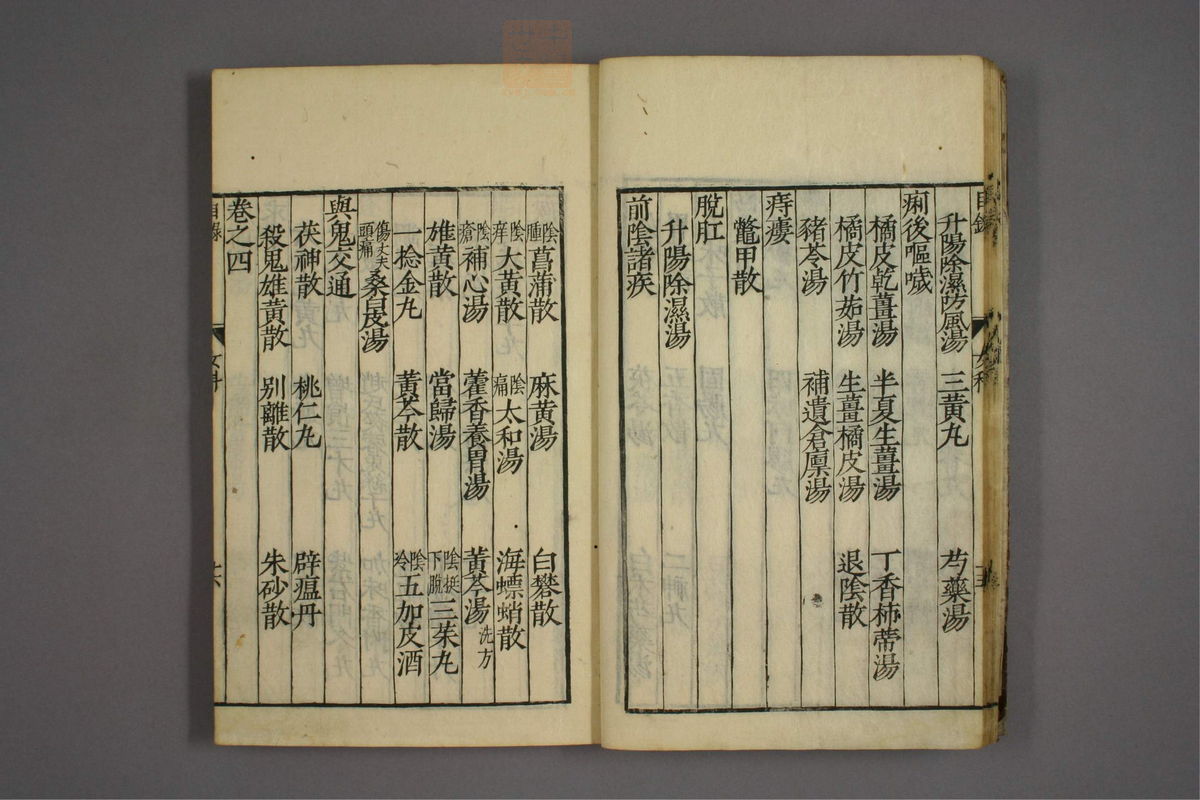 目錄 女科 十五
升陽除濕防風湯 三黃丸 芍藥湯
痢後嘔噦
橘皮乾薑湯 半夏生薑湯 丁香柿蒂湯
橘皮竹茹湯 生薑橘皮湯 退陰散
豬苓湯 補遺倉廩湯
痔瘻
鼈甲散
脫肛
升陽除濕湯
前陰諸疾
陰腫菖蒲散 麻黃湯 白礬散
陰痒大黃散 陰痛太和湯 海螵蛸散
陰瘡補心湯 藿香養胃湯 黃芩湯洗方
雄黃散 當歸湯 陰挺下脫三茱丸
一捻金丸 黃芩散 陰冷五加皮酒
傷丈夫頭痛桑白皮湯
與鬼交通
茯神散 桃仁丸 辟瘟丹
殺鬼雄黃散 別離散 朱砂散
卷之四
目錄 女科 十六